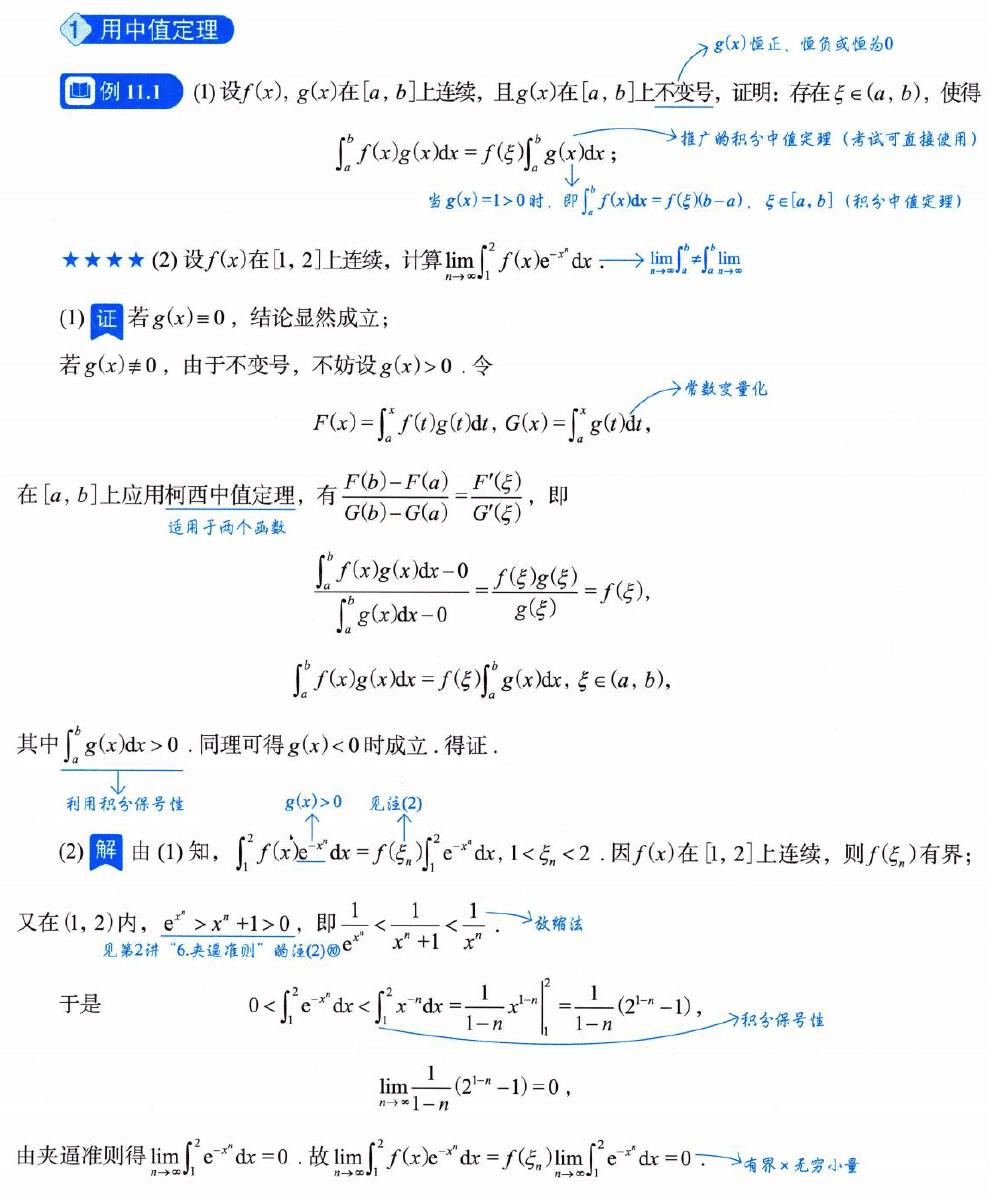 1 用中值定理
g(x)恒正、恒负或恒为0
例 11.1 (1) 设f(x), g(x)在[a, b]上连续，且g(x)在[a, b]上不变号，证明：存在ξ∈(a, b)，使得
∫_a^b f(x)g(x)dx = f(ξ)∫_a^b g(x)dx； →推广的积分中值定理（考试可直接使用）
当g(x)=1>0时，即∫_a^b f(x)dx=f(ξ)(b−a)，ξ∈[a, b]（积分中值定理）
★★★★ (2) 设f(x)在[1, 2]上连续，计算lim_{n→∞}∫_1^2 f(x)e^{−x^n}dx． →lim_{n→∞}∫_a^b≠∫_a^b lim_{n→∞}
(1) 证 若g(x)≡0，结论显然成立；
若g(x)≢0，由于不变号，不妨设g(x)>0．令
→常数变量化
F(x)=∫_a^x f(t)g(t)dt, G(x)=∫_a^x g(t)dt,
在[a, b]上应用柯西中值定理，有 (F(b)−F(a))/(G(b)−G(a)) = F′(ξ)/G′(ξ)，即
适用于两个函数
(∫_a^b f(x)g(x)dx−0)/(∫_a^b g(x)dx−0) = f(ξ)g(ξ)/g(ξ) = f(ξ),
∫_a^b f(x)g(x)dx = f(ξ)∫_a^b g(x)dx, ξ∈(a, b),
其中∫_a^b g(x)dx>0．同理可得g(x)<0时成立．得证．
利用积分保号性 g(x)>0 见注(2)
(2) 解 由 (1) 知，∫_1^2 f(x)e^{−x^n}dx = f(ξ_n)∫_1^2 e^{−x^n}dx, 1<ξ_n<2．因f(x)在[1, 2]上连续，则f(ξ_n)有界；
又在(1, 2)内，e^{x^n}>x^n+1>0，即 1/e^{x^n} < 1/(x^n+1) < 1/x^n． →放缩法
见第2讲“6.夹逼准则”的注(2)⑩
于是 0<∫_1^2 e^{−x^n}dx<∫_1^2 x^{−n}dx = 1/(1−n) x^{1−n}|_1^2 = 1/(1−n) (2^{1−n}−1)，
→积分保号性
lim_{n→∞} 1/(1−n) (2^{1−n}−1)=0，
由夹逼准则得lim_{n→∞}∫_1^2 e^{−x^n}dx=0．故lim_{n→∞}∫_1^2 f(x)e^{−x^n}dx = f(ξ_n)lim_{n→∞}∫_1^2 e^{−x^n}dx=0． →有界×无穷小量